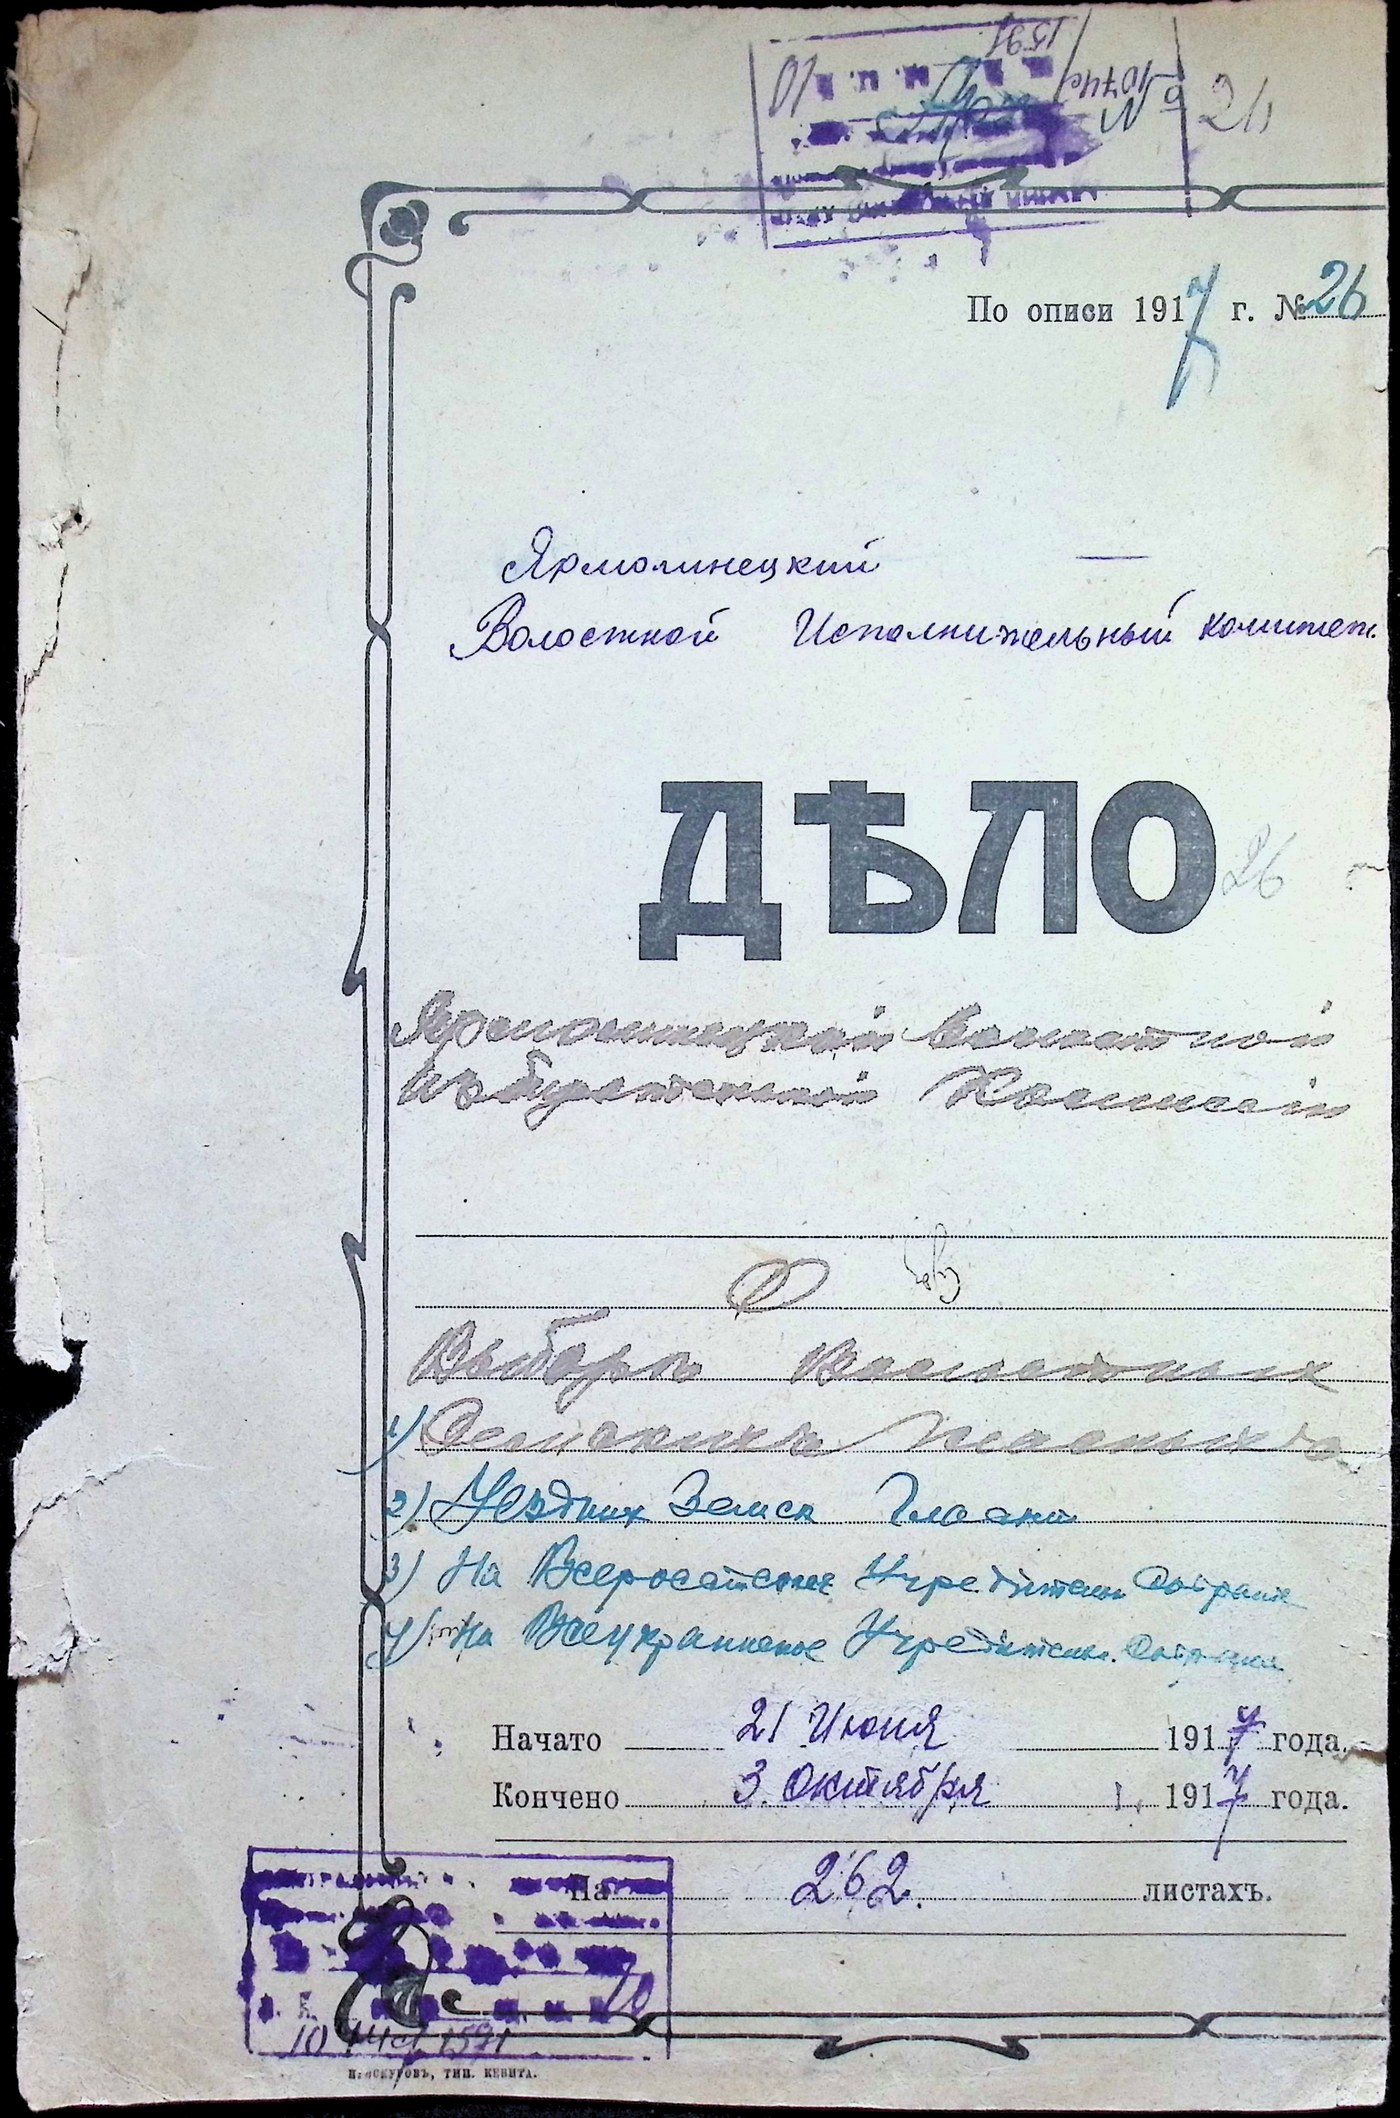 1591
1074с/
№ 26
По описи 1917 г. № 26
Ярмолинецкий
Волостной Исполнительный комитет.
ДѢЛО 26
Ярмолинецкой волостной
избирательной Комиссіи
О
Выборѣ Волостных
1) Земскихъ Гласныхъ
2) Уездних Земск Гласних
3) На Всеросийское Учредительн Собрание
4) На Всеукраинское Учредительн. Собрание
Начато 21 Июня 1917 года.
Кончено 3 Октября 1917 года.
На 262. листахъ.
10 1591
Проскуровъ, тип. Кевита.